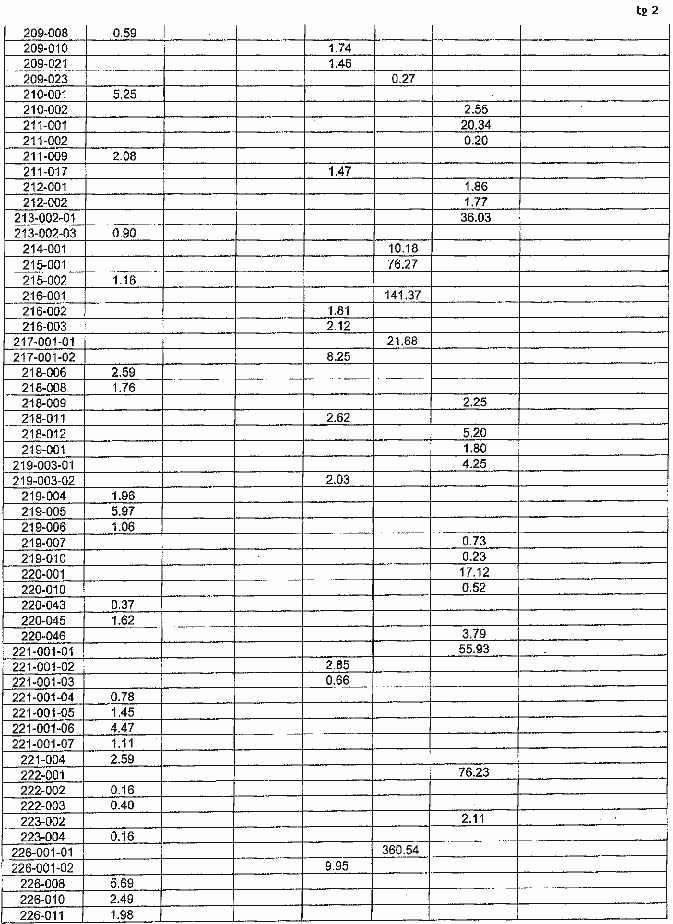 tg 2
209-008 0.59
209-010 1.74
209-021 1.46
209-023 0.27
210-001 5.25
210-002 2.55
211-001 20.34
211-002 0.20
211-009 2.08
211-017 1.47
212-001 1.86
212-002 1.77
213-002-01 36.03
213-002-03 0.90
214-001 10.18
215-001 76.27
215-002 1.16
216-001 141.37
216-002 1.81
216-003 2.12
217-001-01 21.68
217-001-02 8.25
218-006 2.59
218-008 1.76
218-009 2.25
218-011 2.62
218-012 5.20
219-001 1.80
219-003-01 4.25
219-003-02 2.03
219-004 1.96
219-005 5.97
219-006 1.06
219-007 0.73
219-010 0.23
220-001 17.12
220-010 0.52
220-043 0.37
220-045 1.62
220-046 3.79
221-001-01 55.93
221-001-02 2.85
221-001-03 0.66
221-001-04 0.78
221-001-05 1.45
221-001-06 4.47
221-001-07 1.11
221-004 2.59
222-001 76.23
222-002 0.16
222-003 0.40
223-002 2.11
223-004 0.16
226-001-01 360.54
226-001-02 9.95
226-008 5.69
226-010 2.49
226-011 1.98